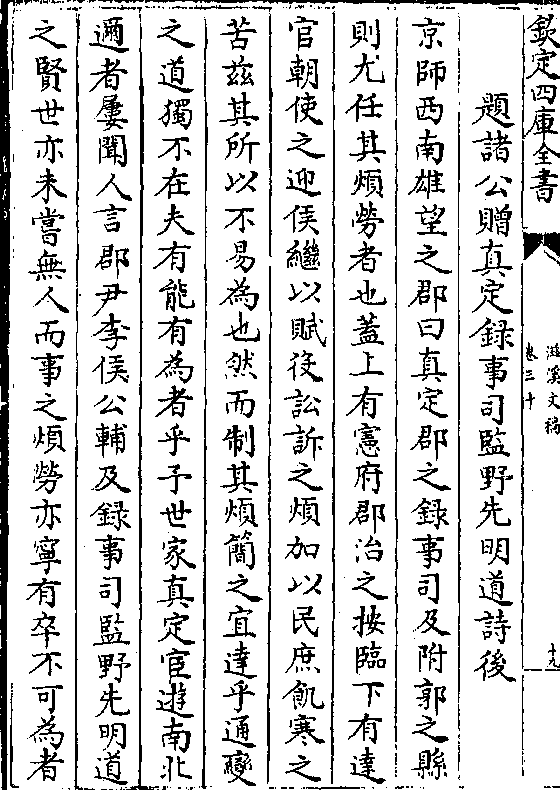 欽定四庫全書
滋溪文稿
卷三十
十九
題諸公贈真定録事司監野先明道詩後
京師西南雄望之郡曰真定郡之録事司及附郭之縣
則尤任其煩勞者也蓋上有憲府郡治之按臨下有達
官朝使之迎俟繼以賦役訟訴之煩加以民庶飢寒之
苦兹其所以不易為也然而制其煩簡之宜達乎通變
之道獨不在夫有能有為者乎予世家真定宦逰南北
邇者屢聞人言郡尹李侯公輔及録事司監野先明道
之賢世亦未嘗無人而事之煩勞亦寧有卒不可為者